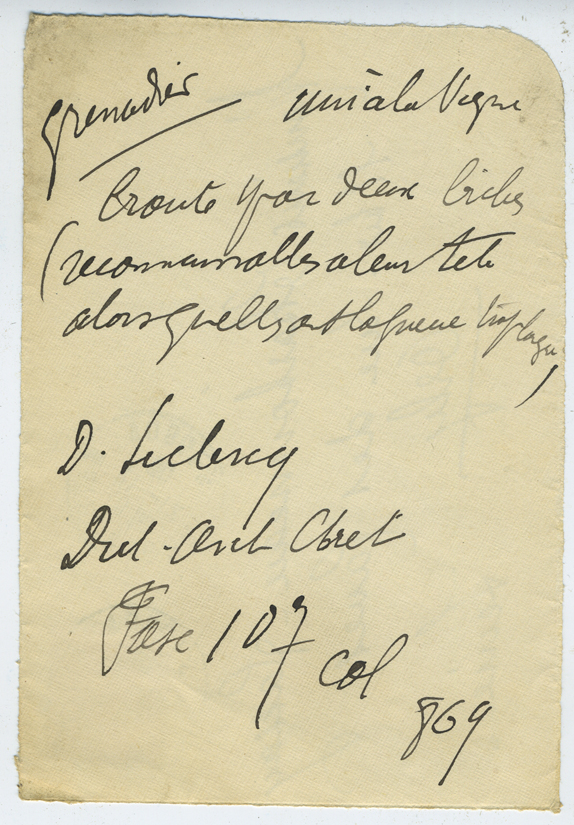 Grenadier uni à la Vigne
broute par deux biches
(reconnaissables a leur tete
alors quelles ont la queue trop longue)
D. Leclercq
Dict. Arch Chret
Fasc 107 col
869